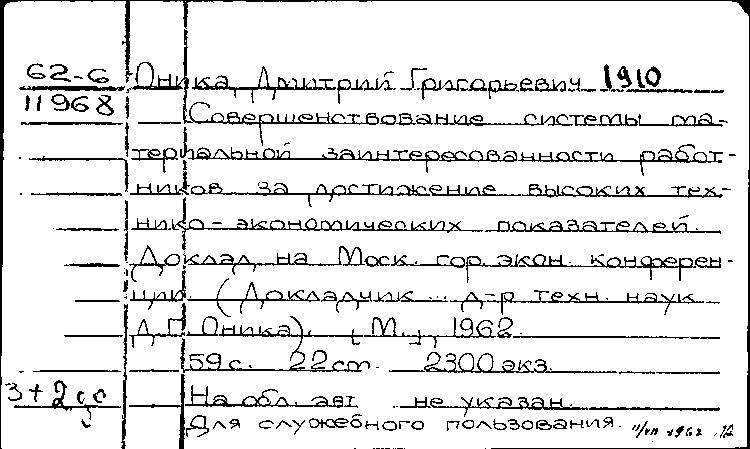 62-6 Оника, Дмитрий Григорьевич 1910
11968 Совершенствование системы ма-
териальной заинтересованности работ-
ников за достижение высоких тех-
нико-экономических показателей.
Доклад на Моск. гор. экон. конферен-
ции. (Докладчик ... д-р техн. наук
Д.Г. Оника). [М.], 1962.
59 с. 22 cm. 2300 экз.
На обл. авт. не указан.
Для служебного пользования.